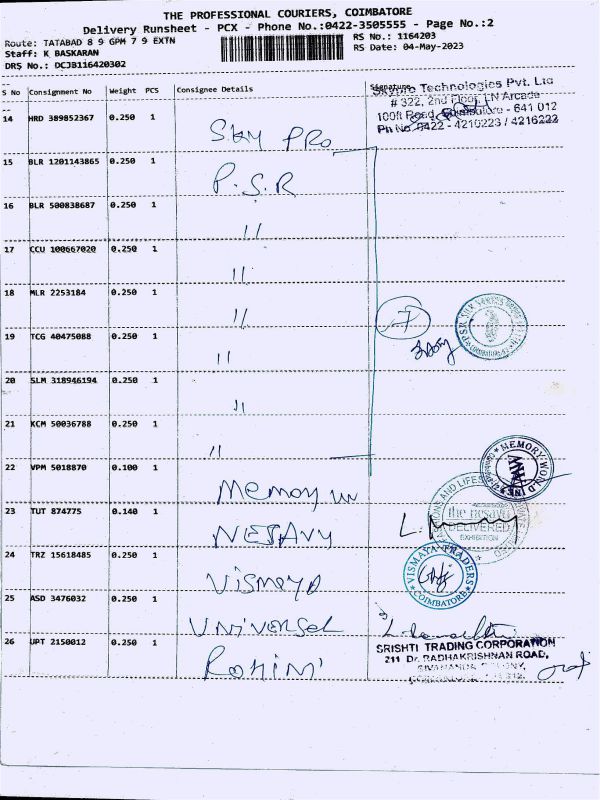 THE PROFESSIONAL COURIERS, COIMBATORE
Delivery Runsheet - PCX - Phone No.:0422-3505555 - Page No.:2
Route: TATABAD 8 9 GPM 7 9 EXTN
Staff: K BASKARAN
DRS No.: DCJB116420302
RS No.: 1164203
RS Date: 04-May-2023
S No Consignment No Weight PCS Consignee Details Signature
Skypro Technologies Pvt. Ltd
# 322, 2nd Floor, LN Arcade
100ft Road, Coimbatore - 641 012
Ph No. 0422 - 4216223 / 4216222
14 HRD 389852367 0.250 1 SKY PRO
15 BLR 1201143865 0.250 1 P.S.R
16 BLR 500838687 0.250 1 "
17 CCU 100667020 0.250 1 "
18 MLR 2253184 0.250 1 "
7
19 TCG 40475088 0.250 1 "
20 SLM 318946194 0.250 1 "
21 KCM 50036788 0.250 1 "
22 VPM 5018870 0.100 1 Memory
MEMORY WORLD
23 TUT 874775 0.140 1 NESAVU
the nesavu
DELIVERED
EXHIBITION
24 TRZ 15618485 0.250 1 Vismaya
VISMAYA TRADERS
COIMBATORE
25 ASD 3476032 0.250 1 Universal
26 UPT 2150012 0.250 1 Rohini
SRISHTI TRADING CORPORATION
211 Dr. RADHAKRISHNAN ROAD,